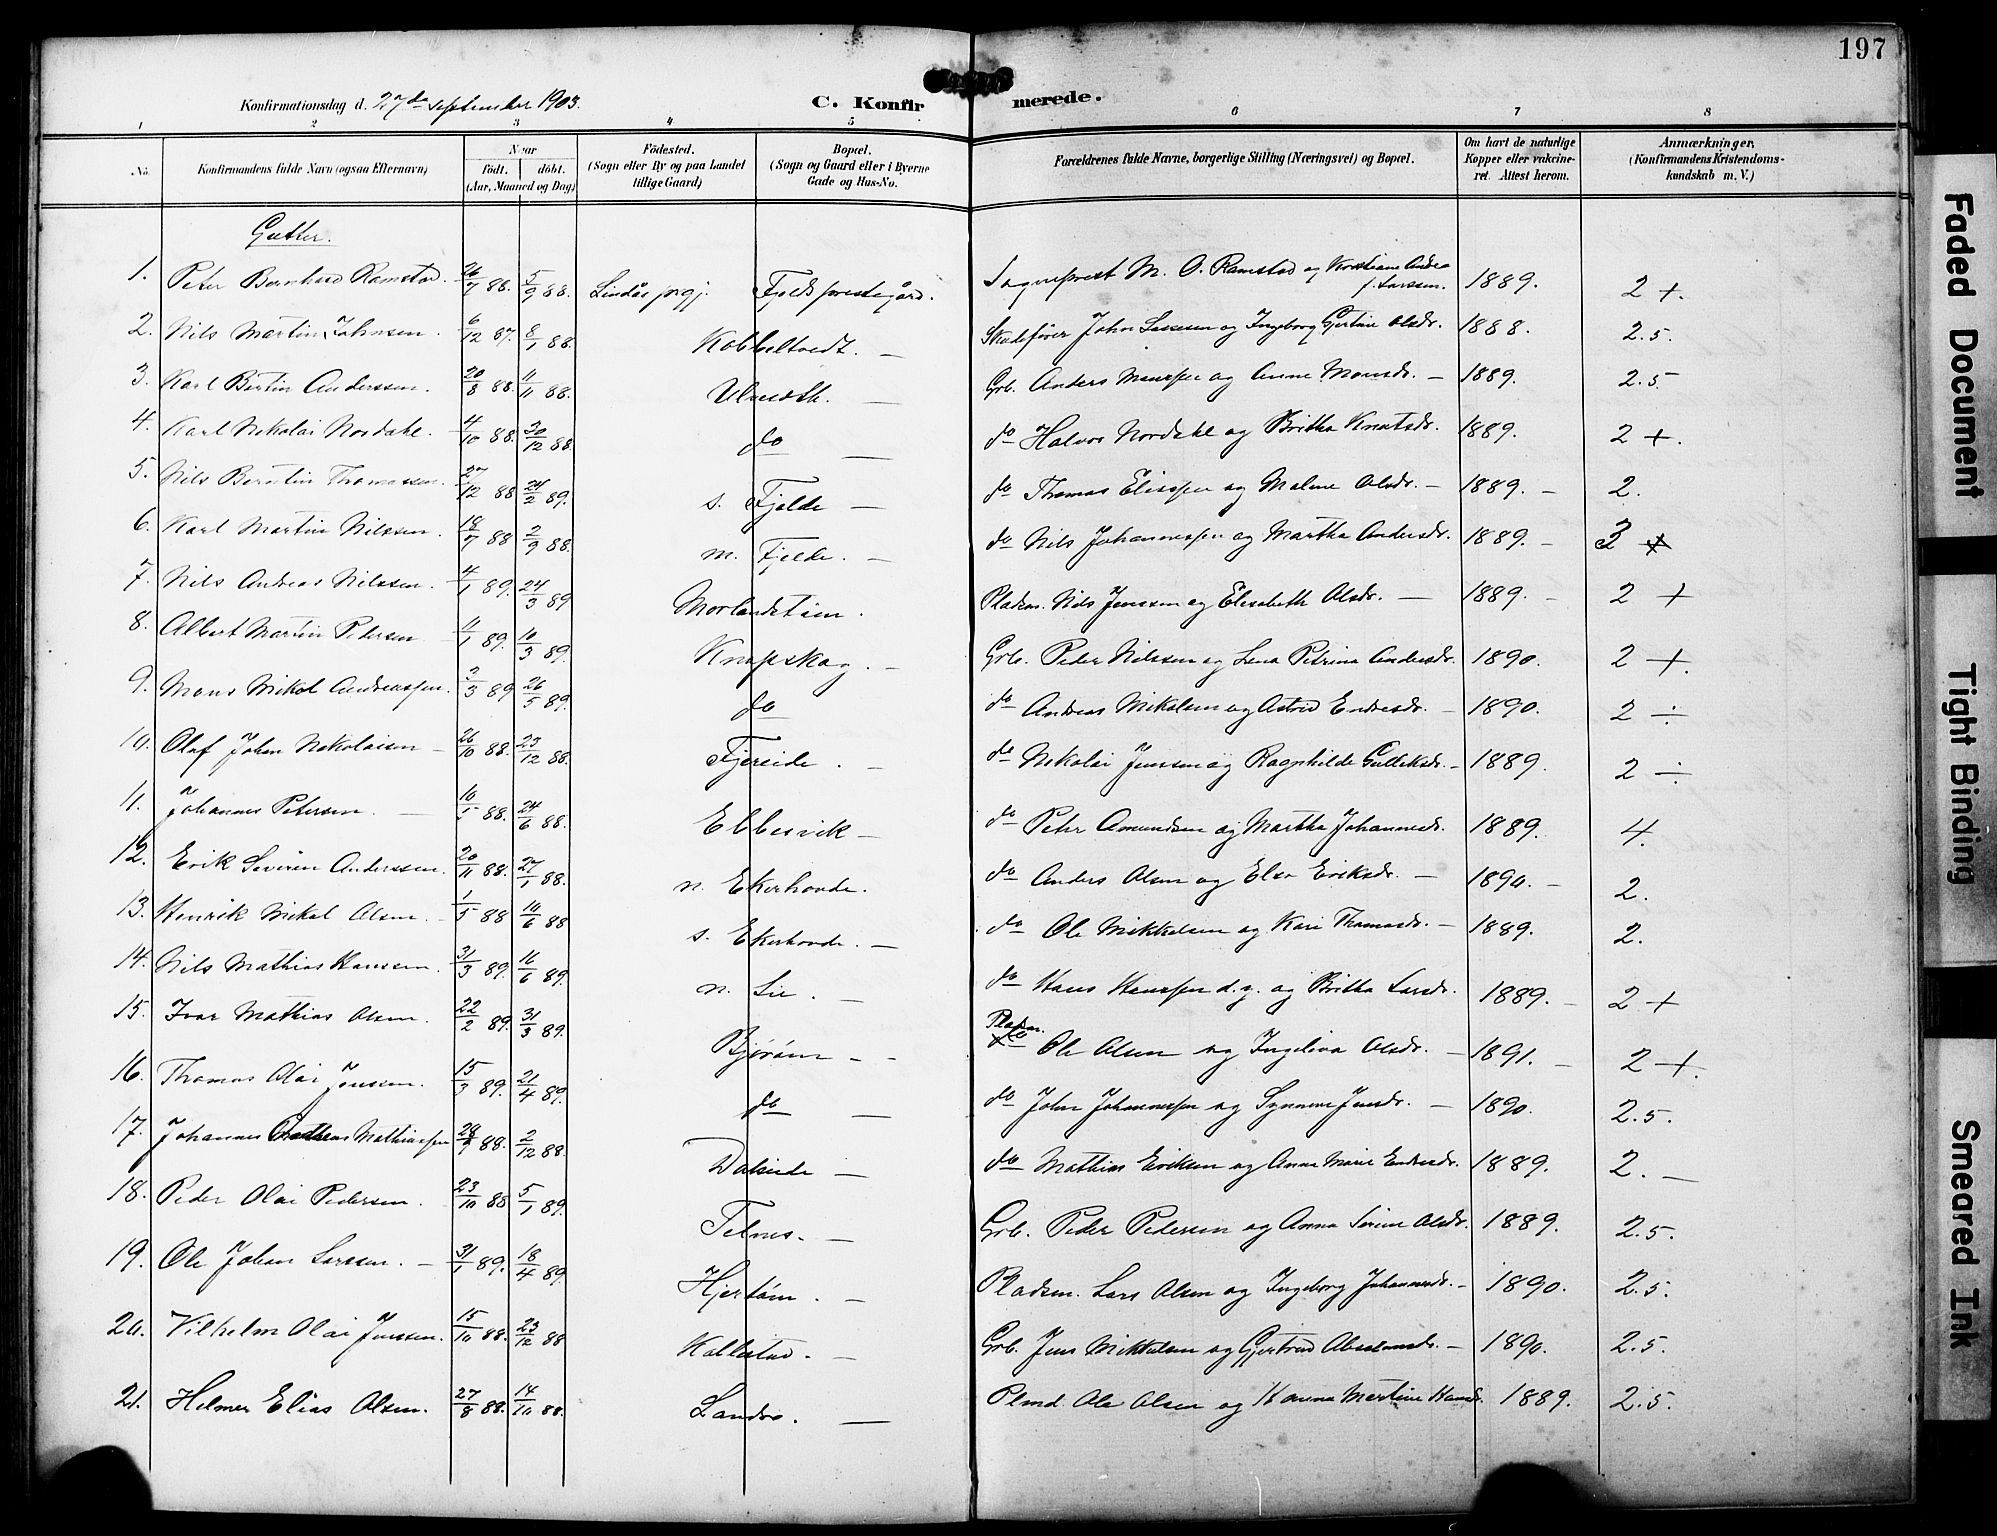 197
Konfirmationsdag d. 27de september 1903.
C. Konfirmerede.
1 2 3 4 5 6 7 8
No. Konfirmandens fulde Navn (ogsaa Efternavn) Naar født. døbt. (Aar, Maaned og Dag) Fødested. (Sogn eller By og paa Landet tillige Gaard) Bopæl. (Sogn og Gaard eller i Byerne Gade og Hus-No. Forældrenes fulde Navne, borgerlige Stilling (Næringsvei) og Bopæl. Om havt de naturlige Kopper eller vakcineret. Attest herom. Anmærkninger, (Konfirmandens Kristendomskundskab m. V.)
Gutter.
1. Peter Bernhard Ramstad. 26/7 88. 5/9 88. Lindås prgj. Fjelds prestegård. Sogneprest M. O. Ramstad og Kristiane Andrea f. Larssen. 1889. 2 +.
2. Nils Martin Johnsen. 6/12 87. 8/1 88. Kobbeltvedt. — John Larssen og Ingeborg Gertine Olsdr. 1888. 2.5.
3. Karl Bertin Anderssen. 20/8 88. 11/11 88. — Grb. Anders Monssen og Anne Monsdr. — 1889. 2.5
4. Karl Nikolai Nordahl. 4/10 88. 30/12 88. do — do Halvor Nordahl og Britha Knutsdr. 1889. 2 +.
5. Nils Berntin Thomassen. 27/12 88 24/2 89. s. Fjelde — do Thomas Eliassen og Malene Olsdr. — 1889. — 2.
6. Karl Martin Nilssen. 18/7 88 2/9 88. m. Fjelde. — do Nils Johannessen og Martha Andersdr. 1889. — 3 +
7. Nils Andreas Nilssen. 4/1 89. 24/3 89 Morlandstøen. Pladsm. Nils Jenssen og Elisabeth Olsdr. — 1889. — 2 +
8. Albert Martin Pedersen 11/1 89. 10/3 89. Knapskog. — Grb. Peder Nilssen og Lena Petrina Andersdr. 1890. 2 +.
9. Mons Mikal Andreassen. 3/3 89 26/5 89. do do Andreas Mikalsen og Astrid Endresdr. — 1890. 2 ÷
10. Olaf Johan Nikolaisen — 26/10 88. 23/12 88. Fjæreide. — do Nikolai Jenssen og Ragnhilde Gulleiksdr. — 1889. 2 ÷
11. Johannes Petersen. — 10/5 88. 24/6 88. Ebbesvik — do Peter Amundsen og Martha Johannesdr. 1889. 4.
12. Erik Severin Anderssen. 20/11 88. 27/1 88. n. Ekerhovde. do Anders Olsen og Elsa Eriksdr. — 1890. — 2.
13. Henrik Mikal Olsen. 1/5 88 10/6 88 s. Ekerhovde. — do Ole Mikkelsen og Kari Thomasdr. — 1889. 2.
14. Nils Mathias Hanssen. 31/3 89. 16/6 89. n. Lie. — do Hans Hanssen d.y. og Britha Larsdr. 1889. — 2 +
15. Ivar Mathias Olsen. 22/2 89. 31/3 89. Bjørøen — Pladsm. Ole Olsen og Ingelina Olsdr. — 1891. — 2 +.
16. Thomas Olai Jonssen. 15/3 89. 21/4 89. do — do John Johannessen og Synneve Jensdr. — 1890. 2.5.
17. Johannes Mathiassen 28/9 88. 2/12 88. Dalseide — do Mathias Eriksen og Anna Marie Endresdr. 1889. 2. —
18. Peder Olai Pedersen. 23/10 88 5/1 89. Telnes. — Grb. Peder Pedersen og Anna Sirine Olsdr. 1889. 2.5.
19. Ole Johan Larssen. — 31/1 89. 18/4 89 Hjertøen. — Pladsm. Lars Olsen og Ingeborg Johannesdr. — 1890. 2.5.
20. Vilhelm Olai Jenssen. 15/10 88. 23/12 88 Kallestad. — Grb. Jens Mikkelsen og Gjertrud Absalonsdr. — 1890. 2.5.
21. Helmer Elias Olsen. 27/8 88. 14/10 88. Landro. — Plmd. Ole Olsen og Hanna Martine Hansdr. 1889. 2.5.
Faded Document
Tight Binding
Smeared Ink